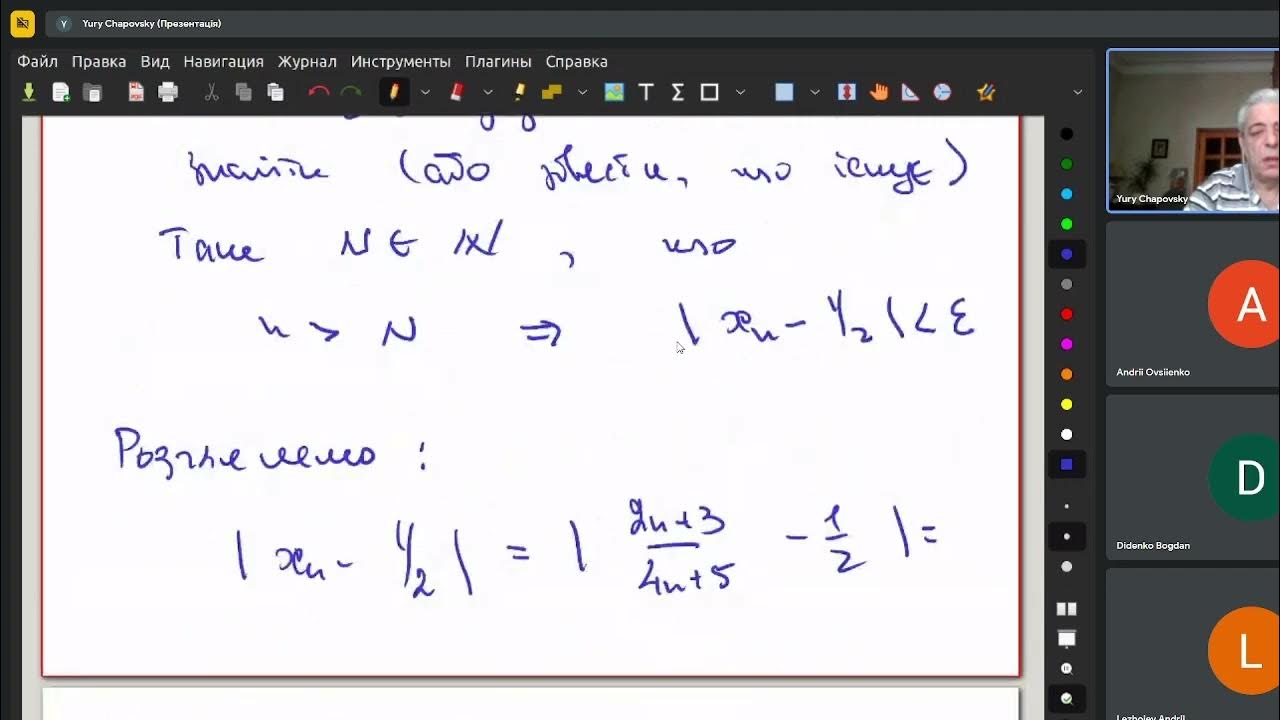 Yury Chapovsky (Презентація)
Y
Файл Правка Вид Навигация Журнал Инструменты Плагины Справка
знайти (або довести, що існує)
Таке N ∈ ℕ, що
n > N ⇒ | xₙ - 1/2 | < ε
Розглянемо :
| xₙ - 1/2 | = | (2n+3)/(4n+5) - 1/2 | =
Yury Chapovsky
A
Andrii Ovsiienko
D
Didenko Bogdan
L
Lezhoiev Andrii